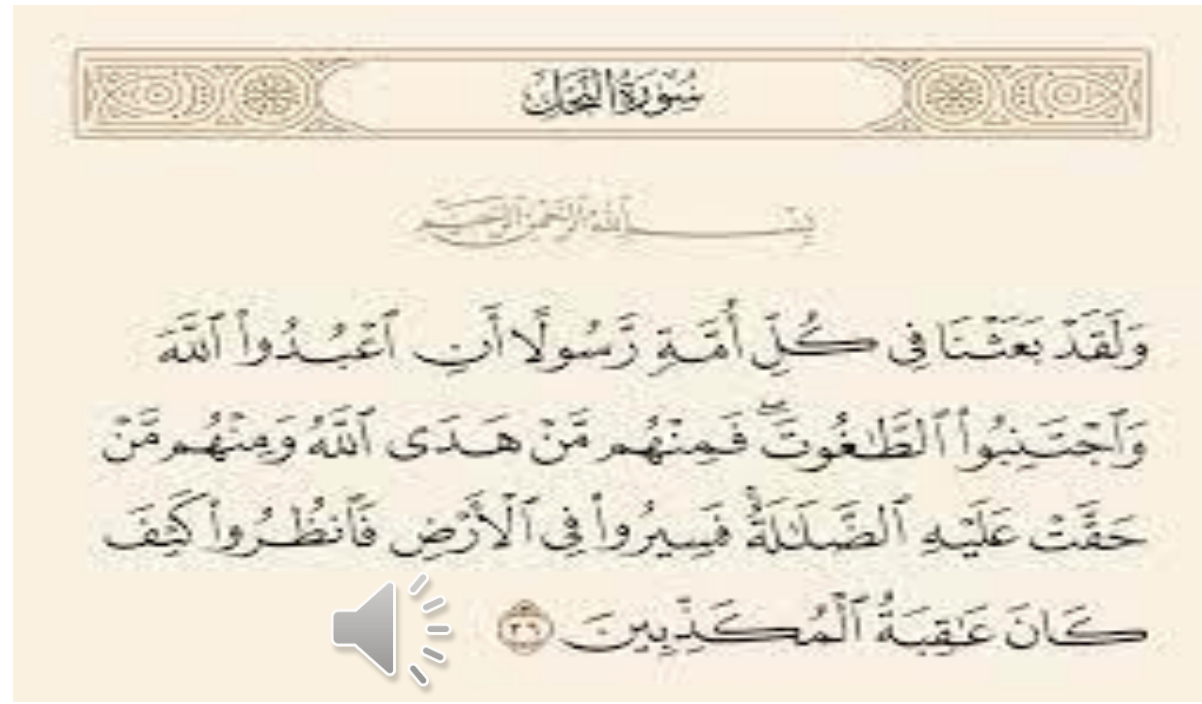 سُورَةُ النَّحْلِ
بِسْمِ اللَّهِ الرَّحْمَٰنِ الرَّحِيمِ
وَلَقَدْ بَعَثْنَا فِي كُلِّ أُمَّةٍ رَّسُولًا أَنِ ٱعْبُدُوا۟ ٱللَّهَ
وَٱجْتَنِبُوا۟ ٱلطَّٰغُوتَۖ فَمِنْهُم مَّنْ هَدَى ٱللَّهُ وَمِنْهُم مَّنْ
حَقَّتْ عَلَيْهِ ٱلضَّلَٰلَةُۚ فَسِيرُوا۟ فِي ٱلْأَرْضِ فَٱنظُرُوا۟ كَيْفَ
كَانَ عَٰقِبَةُ ٱلْمُكَذِّبِينَ ٣٦